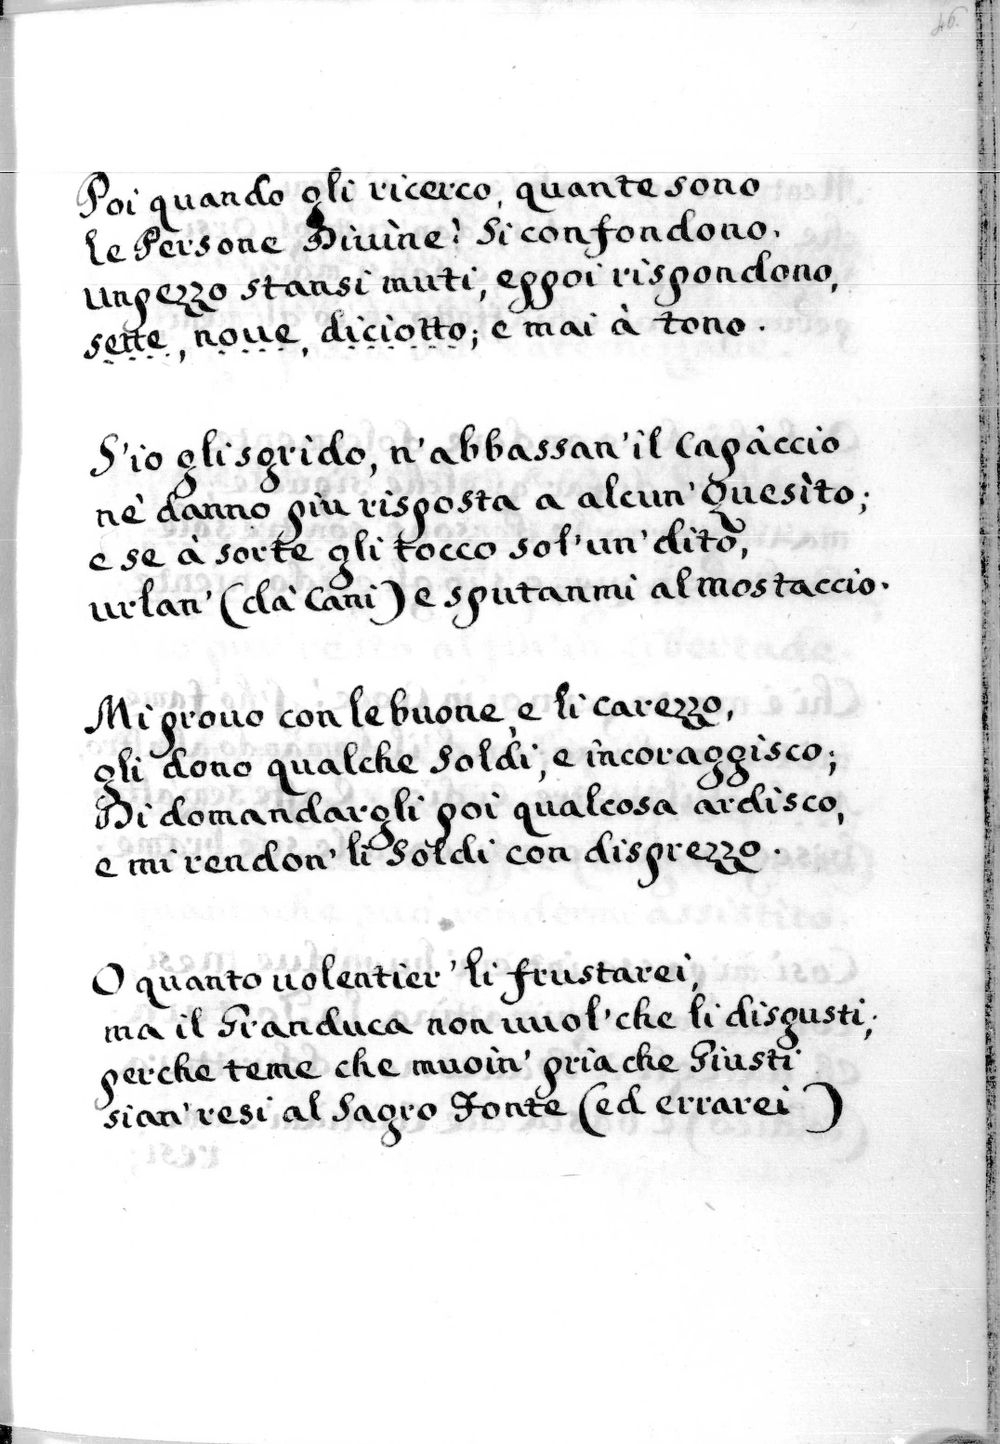 46.
Poi quando gli ricerco, quante sono
le Persone Diuìne? Si confondono.
Unpezzo stansi muti, eppoi rispondono,
sette, noue, diciotto; e mai à tono.
S'io gli sgrido, n'abbassan'il Capàccio
nè danno più risposta a alcun' Quesìto;
e se à sorte gli tocco sol'un'dito,
urlan' (dà Cani) e sputanmi al mostaccio.
Mi prouo con le buone, e li carezzo,
gli dono qualche Soldi, e incoraggisco;
Di domandargli poi qualcosa ardisco,
e mi rendon' li Soldi con disprezzo.
O quanto uolentier' li frustarei,
ma il Granduca non uuol'che li disgusti;
perche teme che muoin' pria che Giusti
sian' resi al Sagro Fonte (ed errarei)